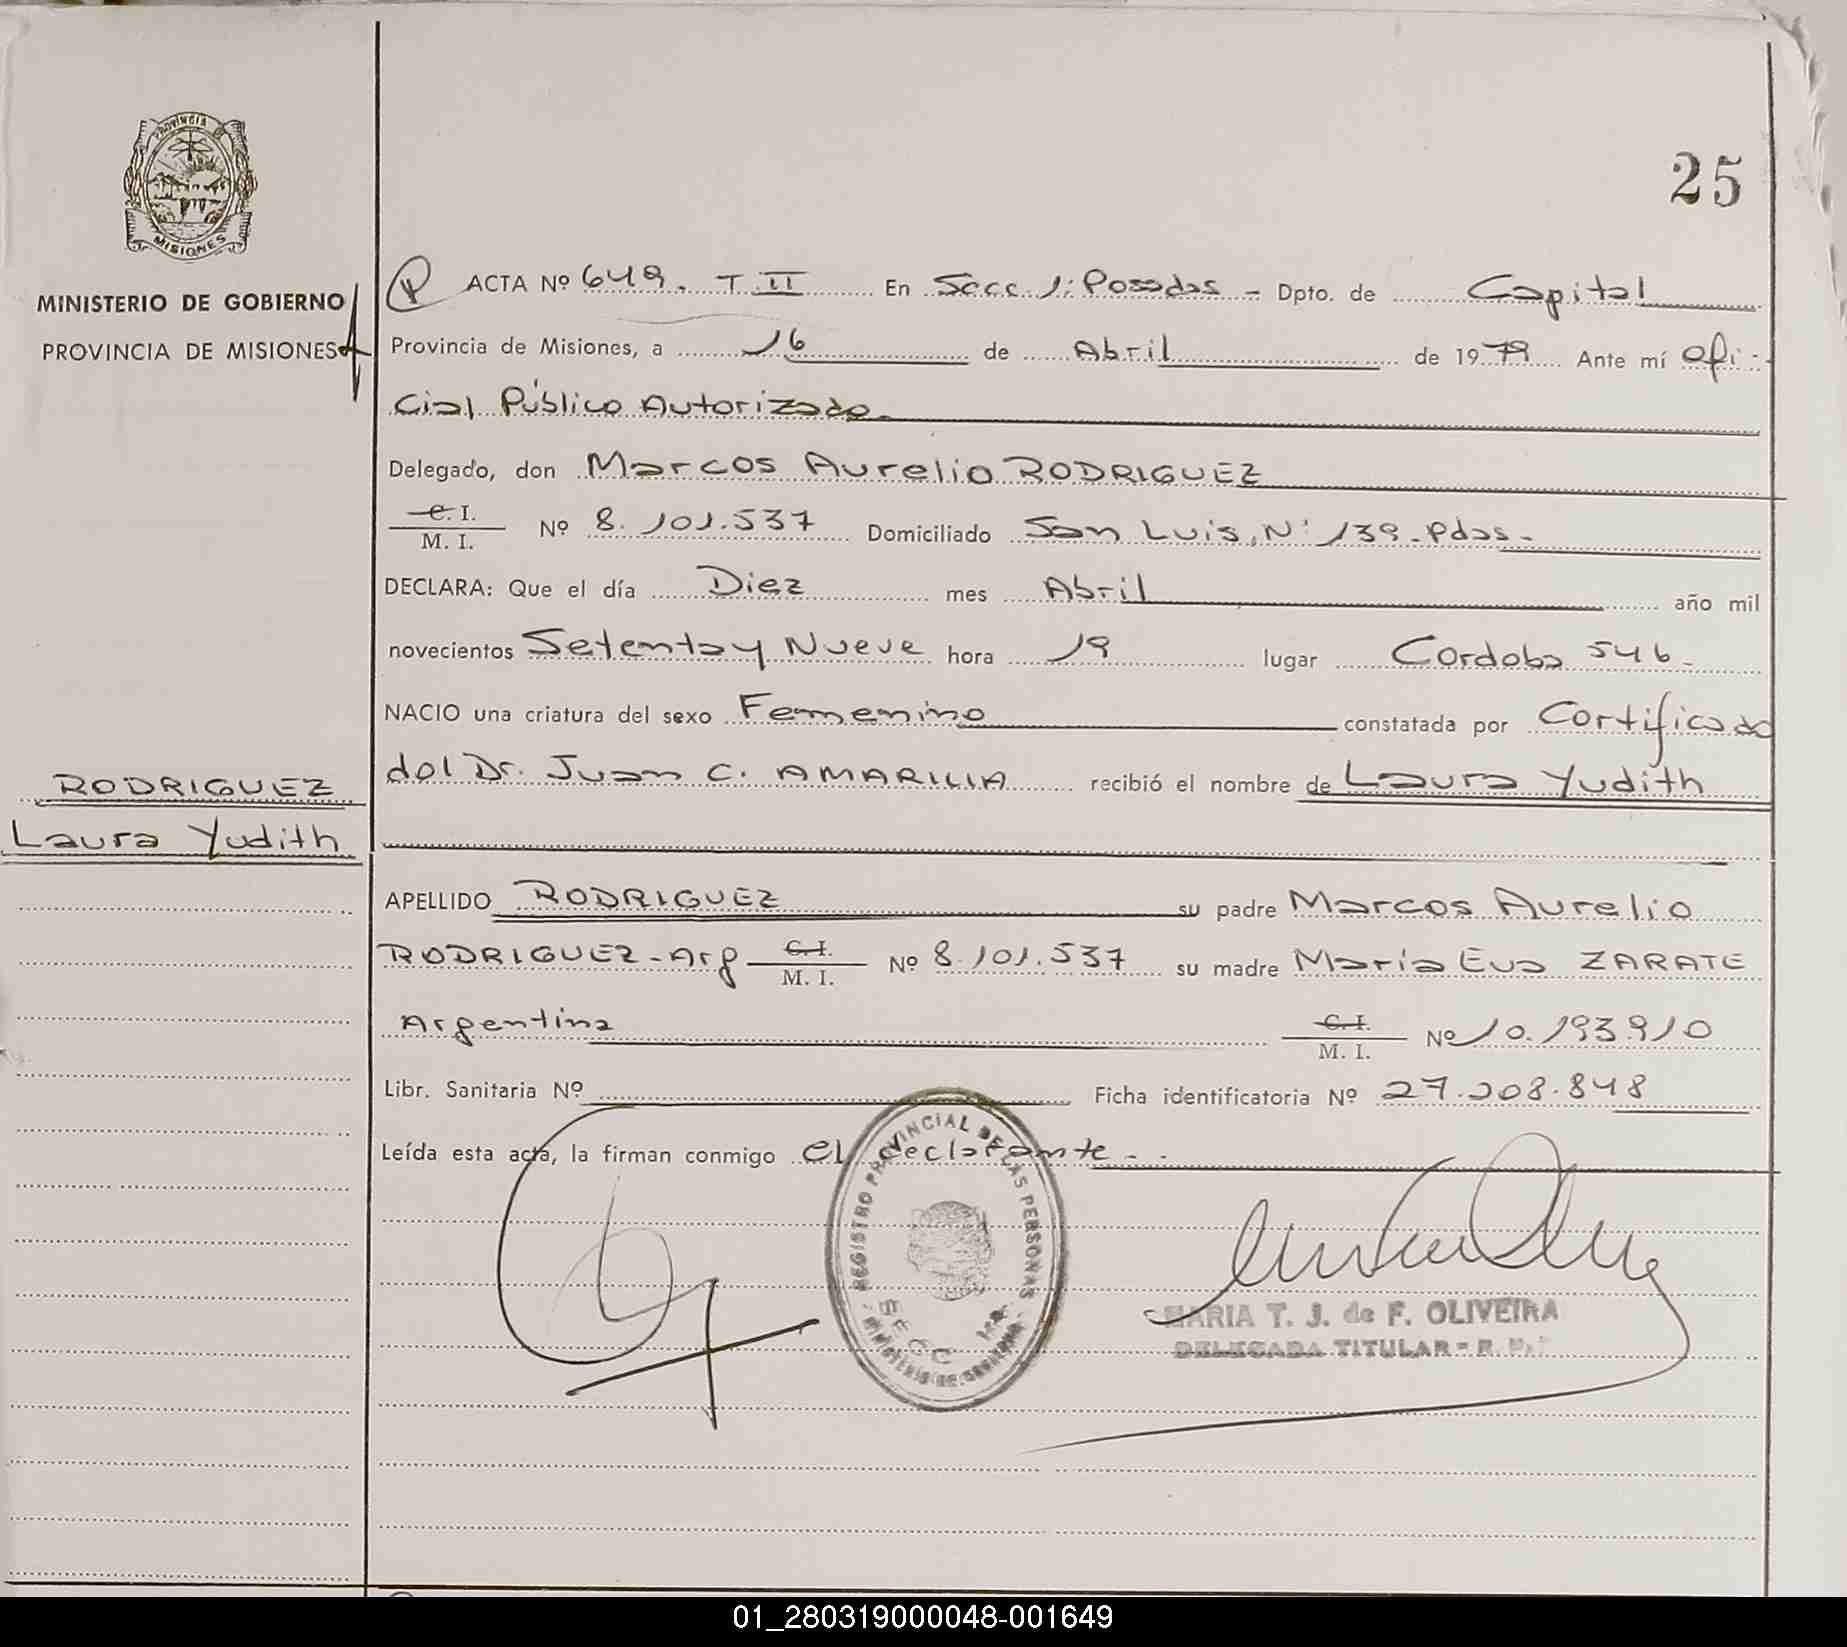 PROVINCIA
MISIONES
MINISTERIO DE GOBIERNO
PROVINCIA DE MISIONES
25
ACTA Nº 649. T. II En Secc. 1: Posadas - Dpto. de Capital
Provincia de Misiones, a 16 de Abril de 1979 Ante mí Ofi-
cial Público Autorizado.
Delegado, don Marcos Aurelio RODRIGUEZ
C. I.
M. I. Nº 8.101.537 Domiciliado San Luis, Nº 139. Pdas.
DECLARA: Que el día Diez mes Abril año mil
novecientos Setenta y Nueve hora 19 lugar Cordoba 546.
NACIO una criatura del sexo Femenino constatada por Certificado
del Dr. Juan C. AMARILIA recibió el nombre de Laura Yudith
RODRIGUEZ
Laura Yudith
APELLIDO RODRIGUEZ su padre Marcos Aurelio
RODRIGUEZ-Arg C. I. M. I. Nº 8.101.537 su madre María Eva ZARATE
Argentina C. I. M. I. Nº 10.193.910
Libr. Sanitaria Nº Ficha identificatoria Nº 27.208.848
Leída esta acta, la firman conmigo el declarante.
REGISTRO PROVINCIAL DE LAS PERSONAS
SECC
MARIA T. J. de F. OLIVEIRA
DELEGADA TITULAR
01_280319000048-001649